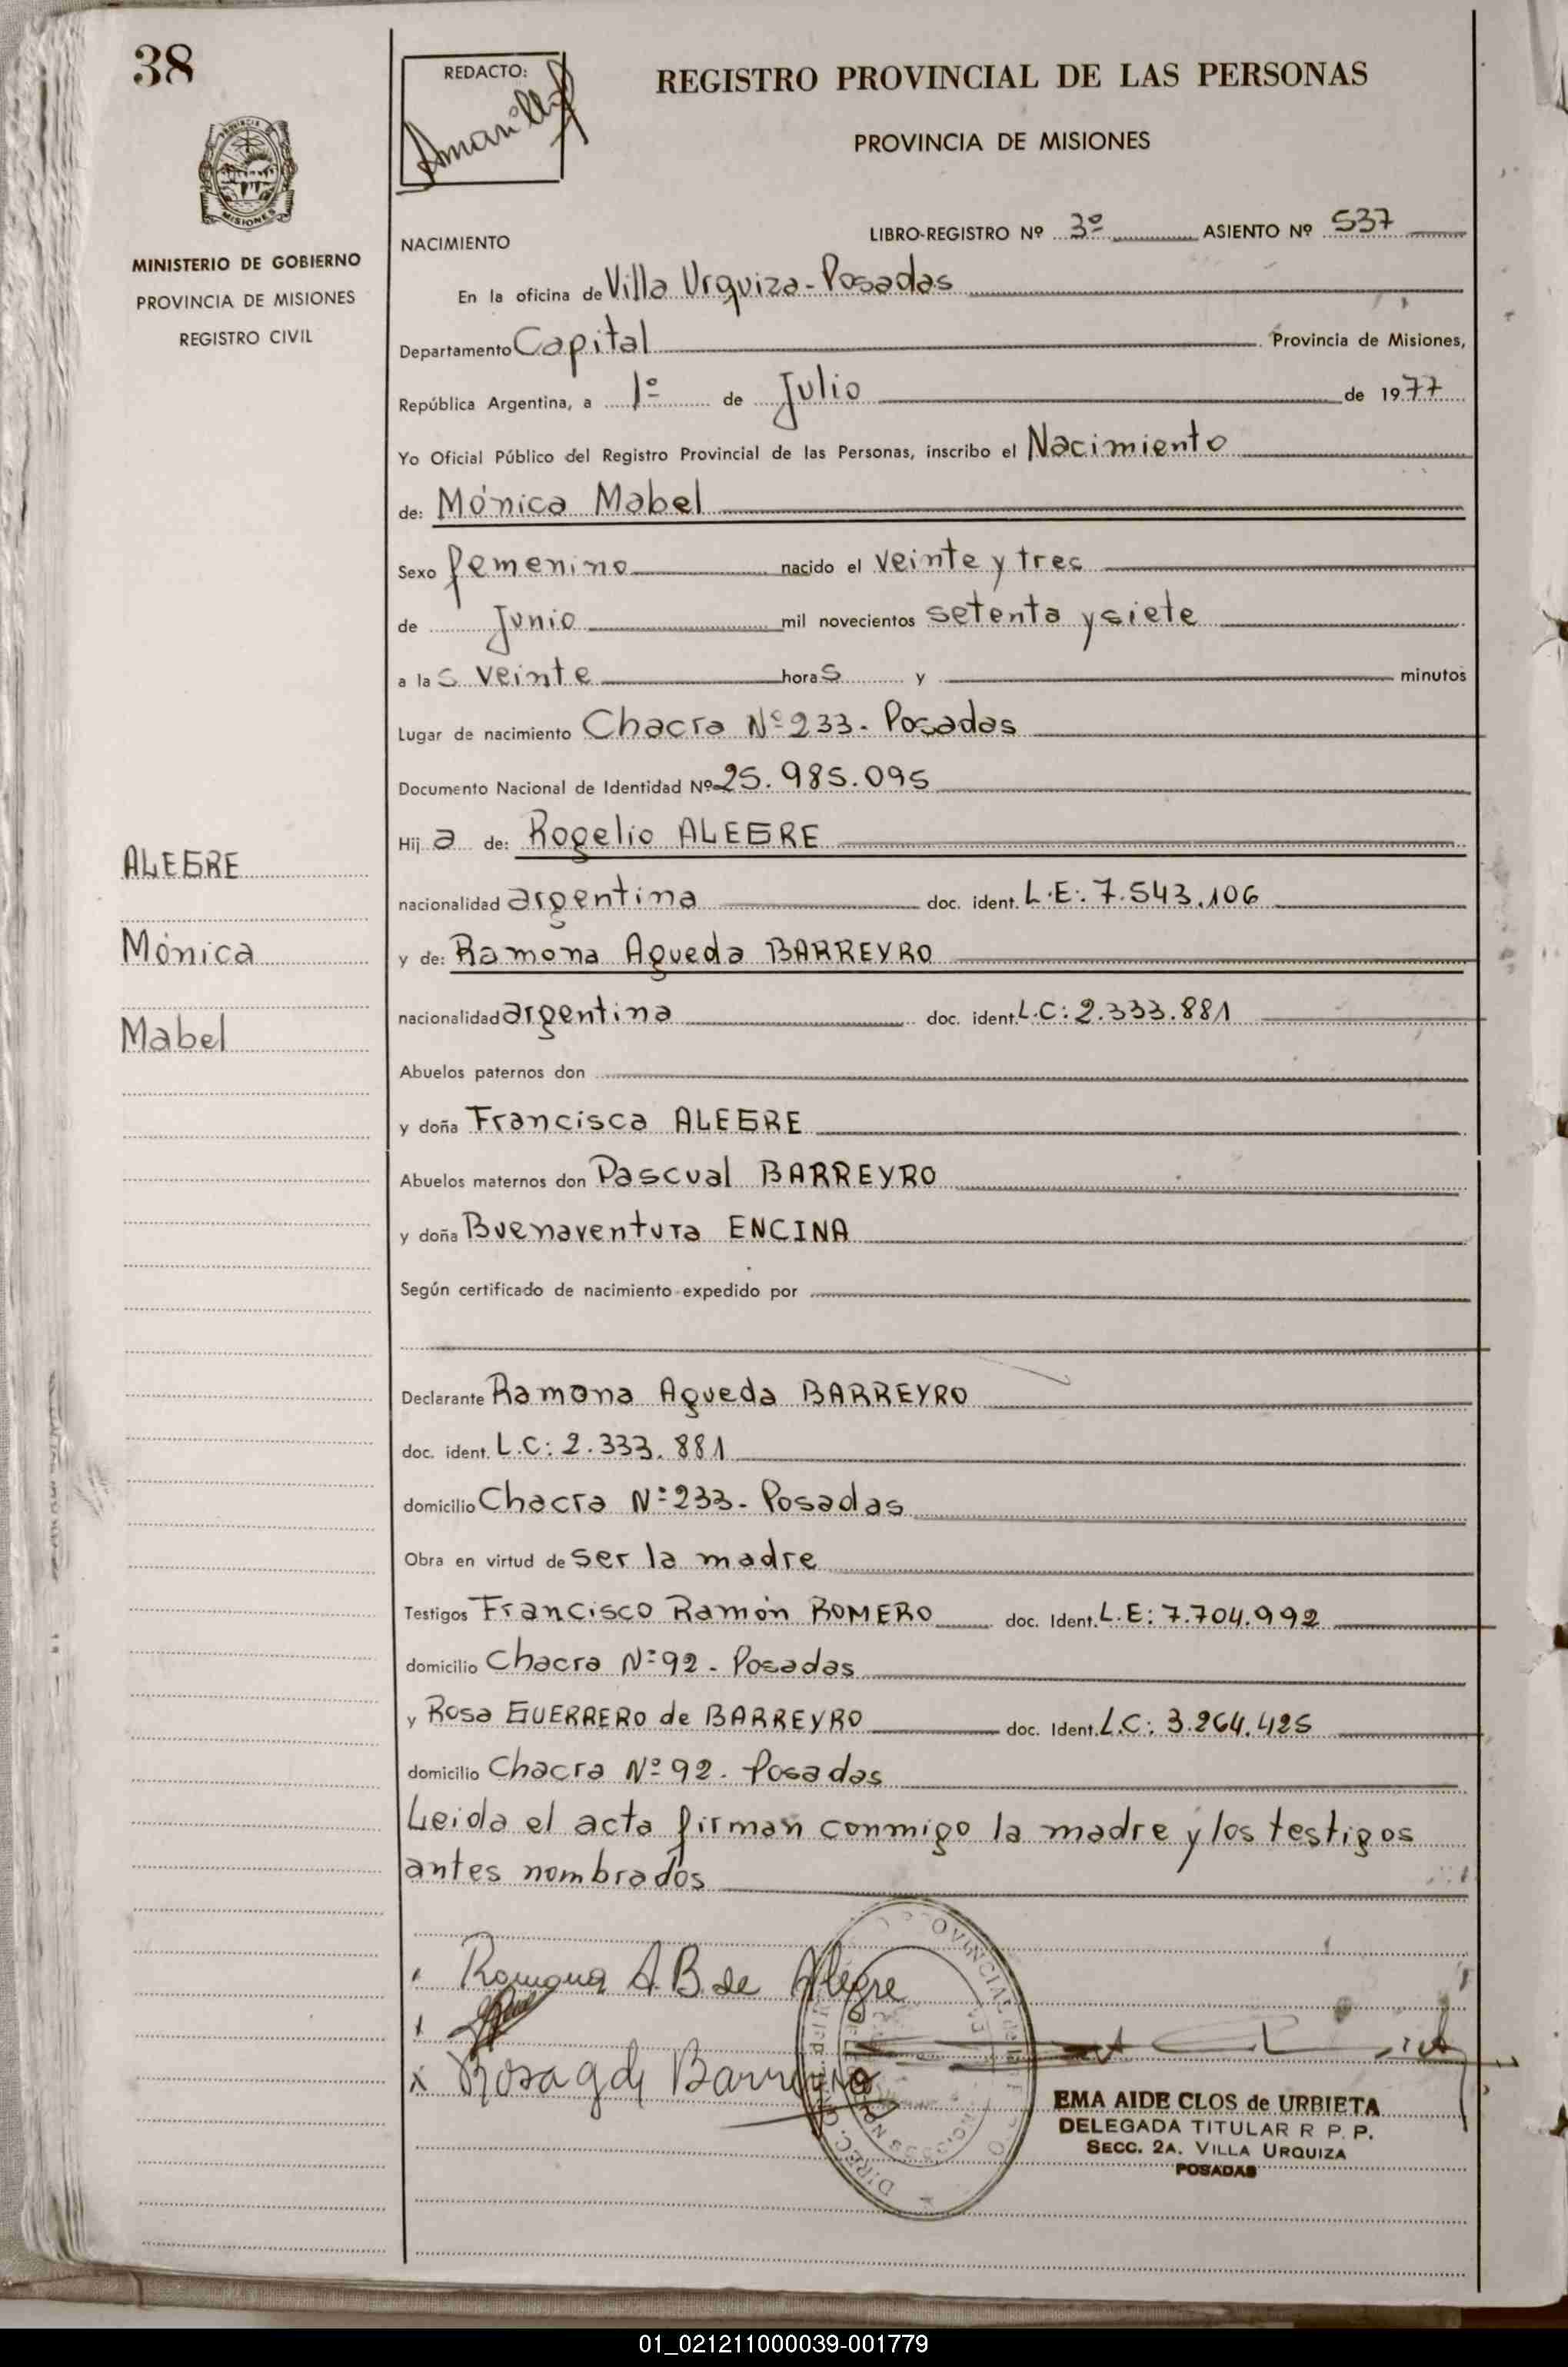 38
REDACTO:
REGISTRO PROVINCIAL DE LAS PERSONAS
PROVINCIA DE MISIONES
MISIONES
MINISTERIO DE GOBIERNO
PROVINCIA DE MISIONES
REGISTRO CIVIL
NACIMIENTO
LIBRO-REGISTRO Nº 3º ASIENTO Nº 537
En la oficina de Villa Urquiza - Posadas
Departamento Capital Provincia de Misiones,
República Argentina, a 1º de Julio de 1977
Yo Oficial Público del Registro Provincial de las Personas, inscribo el Nacimiento
de: Mónica Mabel
Sexo femenino nacido el veinte y tres
de Junio mil novecientos setenta y siete
a las veinte horas y minutos
Lugar de nacimiento Chacra Nº 233 - Posadas
Documento Nacional de Identidad Nº 25.985.095
Hija de: Rogelio ALEGRE
nacionalidad argentina doc. ident. L.E: 7.543.106
y de: Ramona Agueda BARREYRO
nacionalidad argentina doc. ident. L.C: 2.333.881
Abuelos paternos don
y doña Francisca ALEGRE
Abuelos maternos don Pascual BARREYRO
y doña Buenaventura ENCINA
Según certificado de nacimiento expedido por
Declarante Ramona Agueda BARREYRO
doc. ident. L.C: 2.333.881
domicilio Chacra Nº 233 - Posadas
Obra en virtud de ser la madre
Testigos Francisco Ramón ROMERO doc. Ident. L.E: 7.704.992
domicilio Chacra Nº 92 - Posadas
y Rosa GUERRERO de BARREYRO doc. Ident. L.C: 3.264.425
domicilio Chacra Nº 92 - Posadas
Leida el acta firman conmigo la madre y los testigos
antes nombrados
ALEGRE
Mónica
Mabel
Ramona A.B de Alegre
Rosa g de Barreyro
EMA AIDE CLOS de URBIETA
DELEGADA TITULAR R P. P.
SECC. 2A. VILLA URQUIZA
POSADAS
01_021211000039-001779